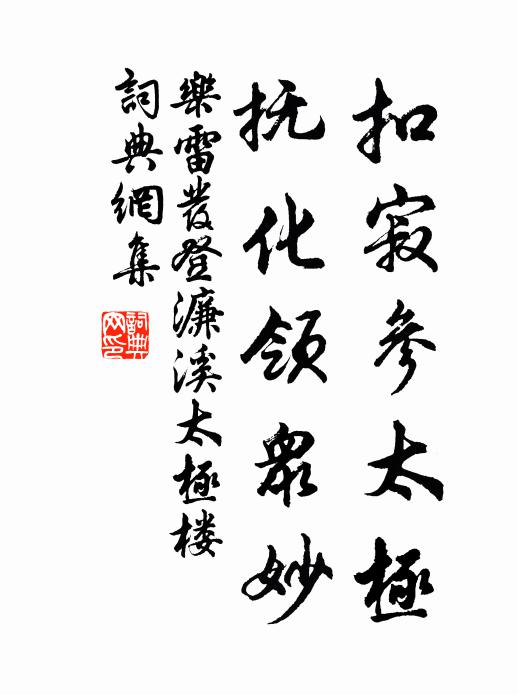 扣寂參太極
抚化領衆妙
樂雷發登濂溪太極楼
詞典網集
詞典
网印